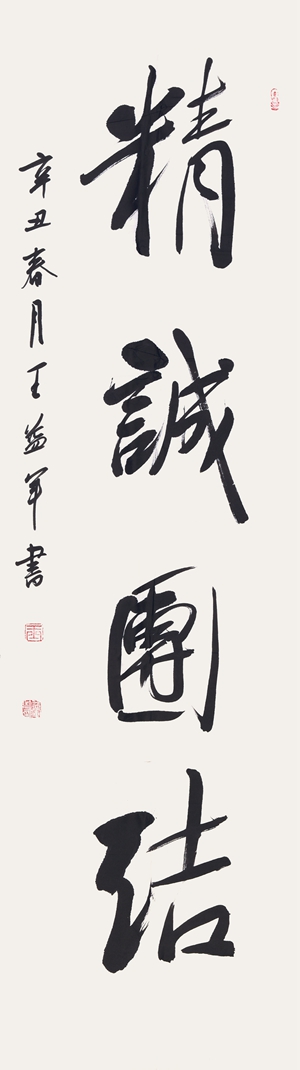 精誠團结
辛丑春月王益軍書